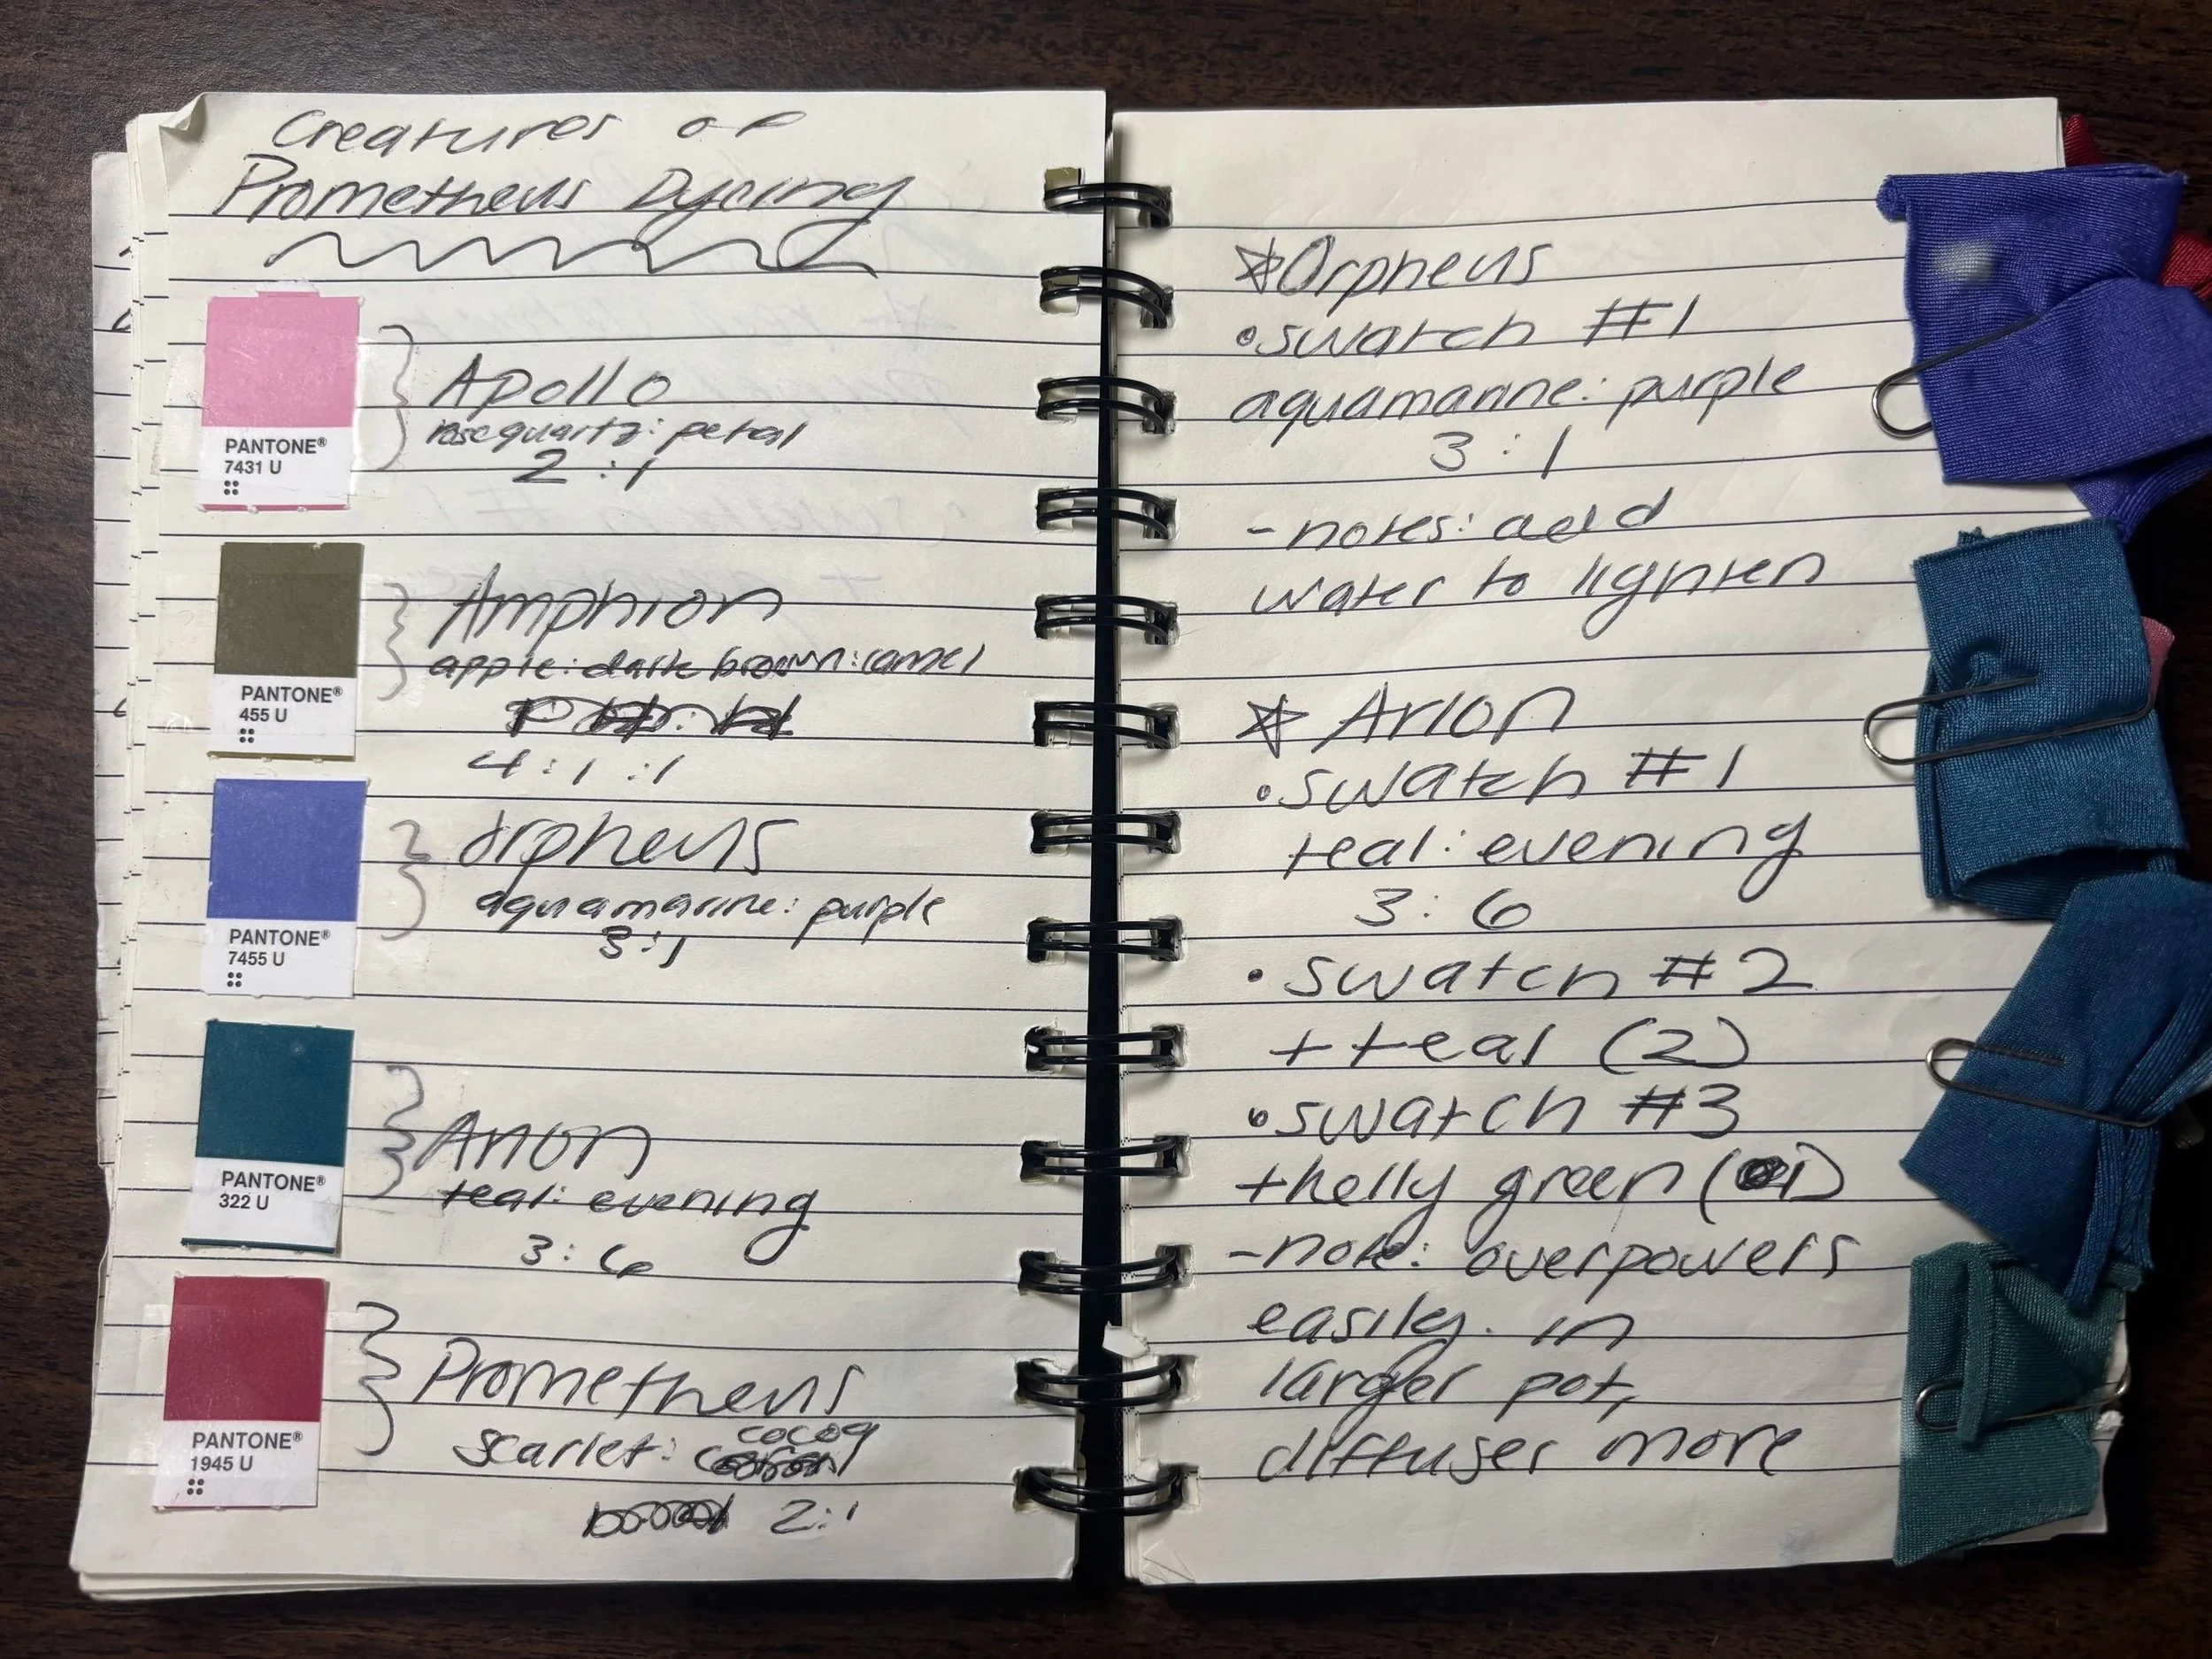 Creatures of
Prometheus Dyeing
PANTONE®
7431 U
Apollo
rosequartz: petal
2:1
PANTONE®
455 U
Amphion
apple: dark brown: camel
4:1:1
PANTONE®
7455 U
Orpheus
aquamarine: purple
3:1
PANTONE®
322 U
Arion
teal: evening
3:6
PANTONE®
1945 U
Prometheus
cocoa
scarlet:
2:1
☆Orpheus
•swatch #1
aquamarine: purple
3:1
-notes: add
water to lighten
☆ Arion
•swatch #1
teal: evening
3:6
•swatch #2
+ teal (2)
•swatch #3
+kelly green (1)
-note: overpowers
easily. in
larger pot,
diffuses more